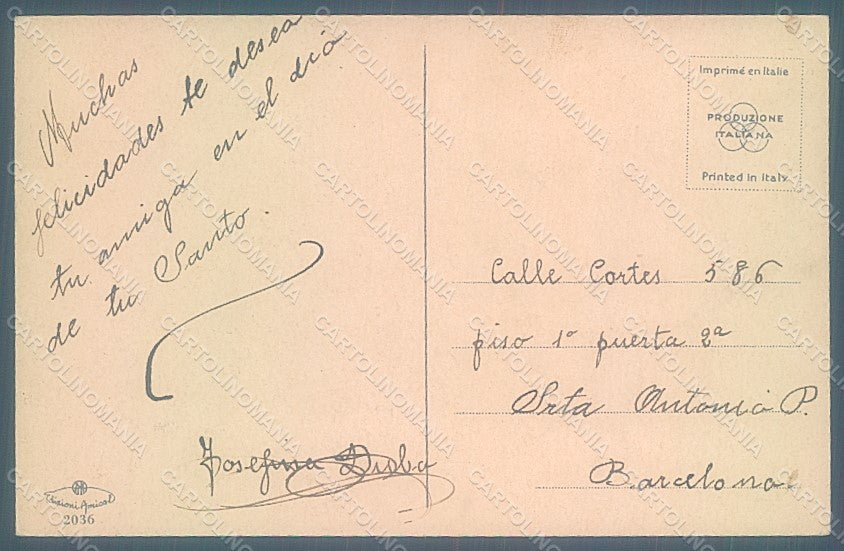 Muchas
felicidades te desea
tu amiga en el dia
de tu Santo.
Josefina
Edizioni Amical
2036
Imprimé en Italie
PRODUZIONE
ITALIANA
Printed in Italy
Calle Cortes 586
piso 1º puerta 2ª
Srta Antonia P.
Barcelona
CARTOLINOMANIA